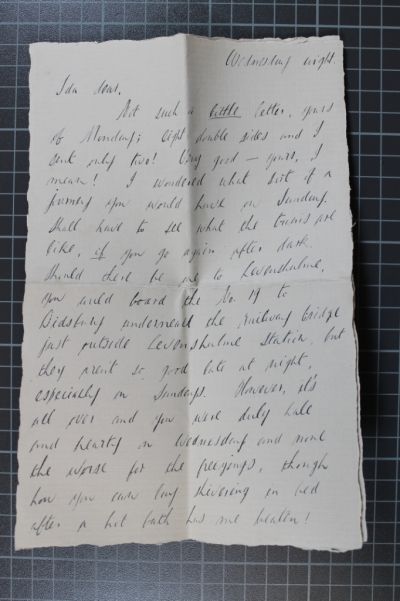 Wednesday night.
Ida dear,
Not such a little letter, yours
of Monday; eight double sides and I
sent only two! Very good — yours, I
mean! I wondered what sort of a
journey you would have on Sunday.
Shall have to see what the trains are
like, if you go again after dark.
Should there be no to Levenshulme,
you could board the No. 19 to
Didsbury underneath the railway bridge
just outside Levenshulme Station, but
they aren't so good late at night,
especially on Sundays. However, it's
all over and you were duly hale
and hearty on Wednesday and none
the worse for the freezings, though
how you can lay shivering in bed
after a hot bath has me beaten!